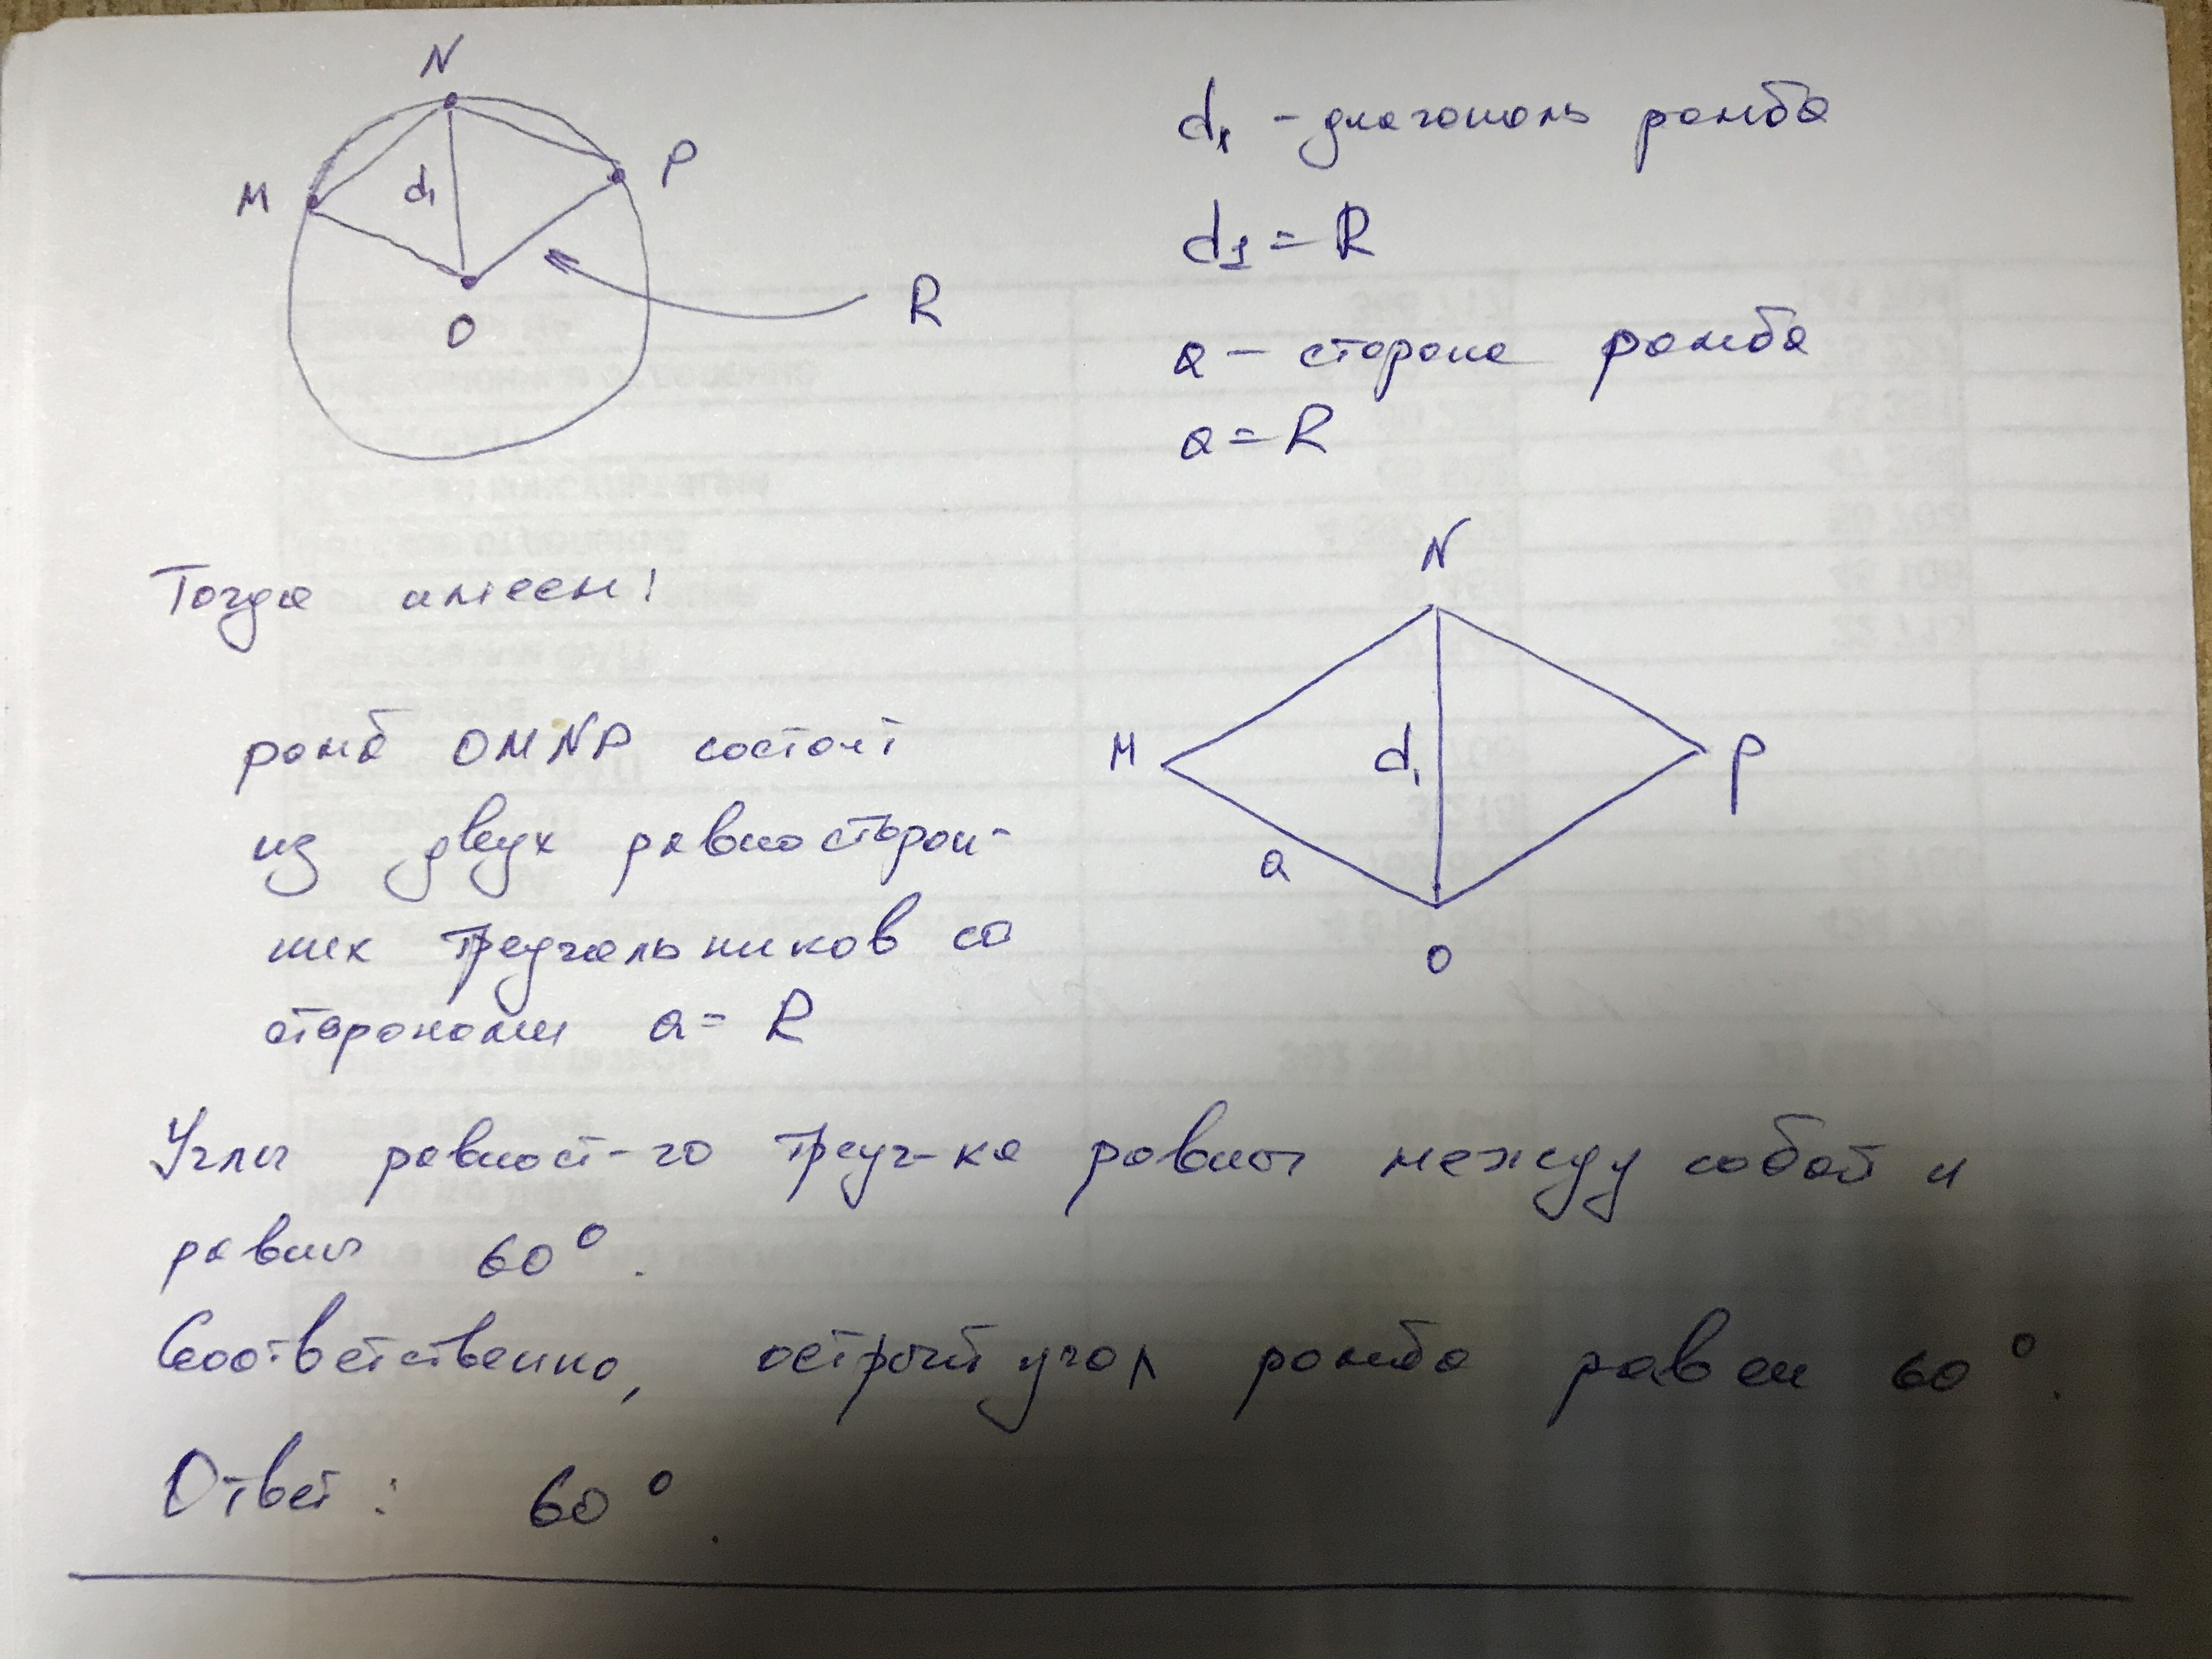 N
M
P
d₁
O
R
d₁ - диагональ ромба
d₁ = R
a - сторона ромба
a = R
Тогда имеем:
N
M
P
d₁
a
O
ромб OMNP состоит
из двух равносторон-
них треугольников со
сторонами a = R
Углы равност-го треуг-ка равны между собой и
равны 60°.
Соответственно, острый угол ромба равен 60°.
Ответ: 60°.